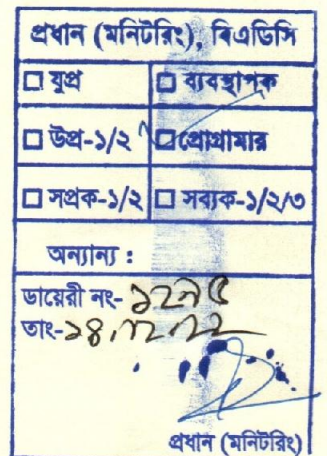 প্রধান (মনিটরিং), বিএডিসি
☐ যুপ্র ☐ ব্যবস্থাপক
☐ উপ্র-১/২ ☐ প্রোগ্রামার
☐ সপ্রক-১/২ ☐ সব্যক-১/২/৩
অন্যান্য :
ডায়েরী নং-
তাং-
প্রধান (মনিটরিং)